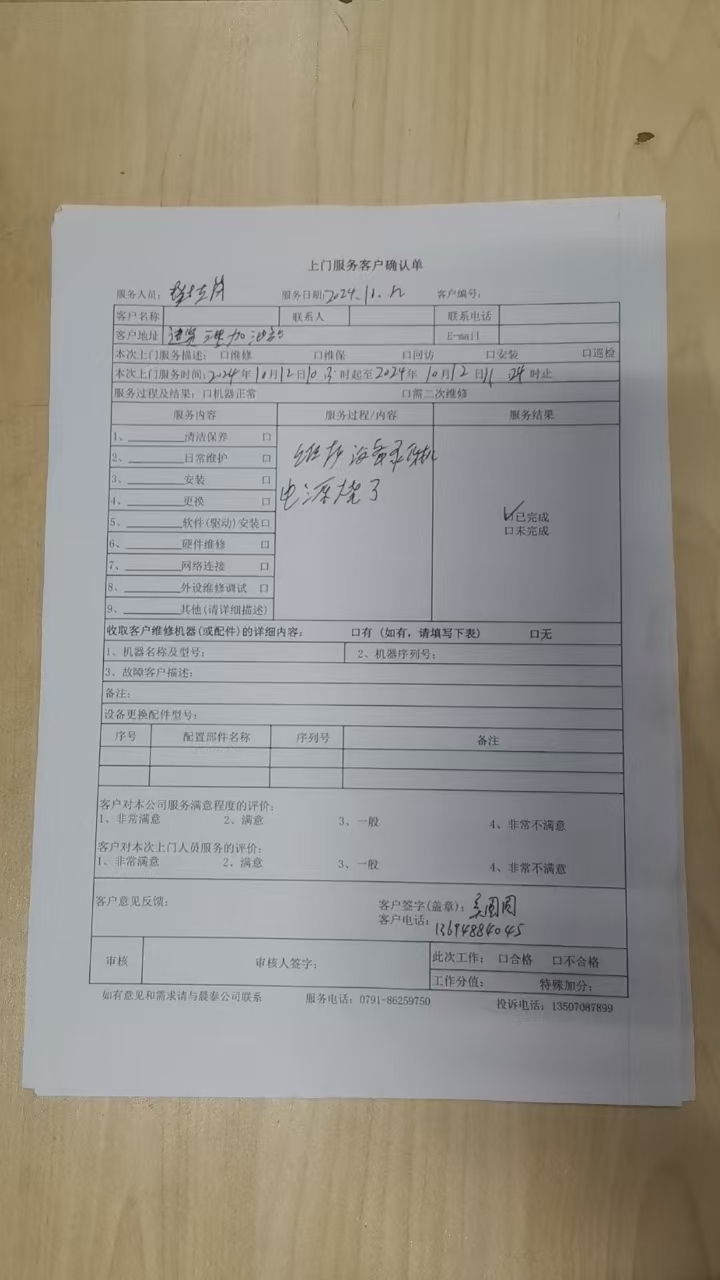 上门服务客户确认单
服务人员: 服务日期: 2024.11.12 客户编号:
客户名称 联系人 联系电话
客户地址 进贤 加油站 E-mail
本次上门服务描述: 口维修 口维保 口回访 口安装 口巡检
本次上门服务时间: 2024年10月12日10 时起至2024年10月12日11 24时止
服务过程及结果: 口机器正常 口需二次维修
服务内容 服务过程/内容 服务结果
1、________清洁保养 口
2、________日常维护 口
3、________安装 口
4、________更换 口
5、________软件(驱动)安装口
6、________硬件维修 口
7、________网络连接 口
8、________外设维修调试 口
9、________其他(请详细描述)
录像机
电源烧了
☑已完成
口未完成
收取客户维修机器(或配件)的详细内容: 口有 (如有, 请填写下表) 口无
1、机器名称及型号: 2、机器序列号:
3、故障客户描述:
备注:
设备更换配件型号:
序号 配置部件名称 序列号 备注
客户对本公司服务满意程度的评价:
1、非常满意 2、满意 3、一般 4、非常不满意
客户对本次上门人员服务的评价:
1、非常满意 2、满意 3、一般 4、非常不满意
客户意见反馈: 客户签字(盖章):
客户电话: 13694884045
审核 审核人签字: 此次工作: 口合格 口不合格
工作分值: 特殊加分:
如有意见和需求请与晨泰公司联系 服务电话: 0791-86259750 投诉电话: 13507087899